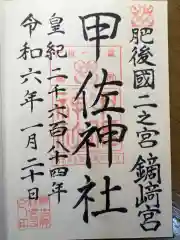 肥後國二之宮 鏑﨑宮
甲佐神社
皇紀二千六百八十四年
令和六年一月二十日